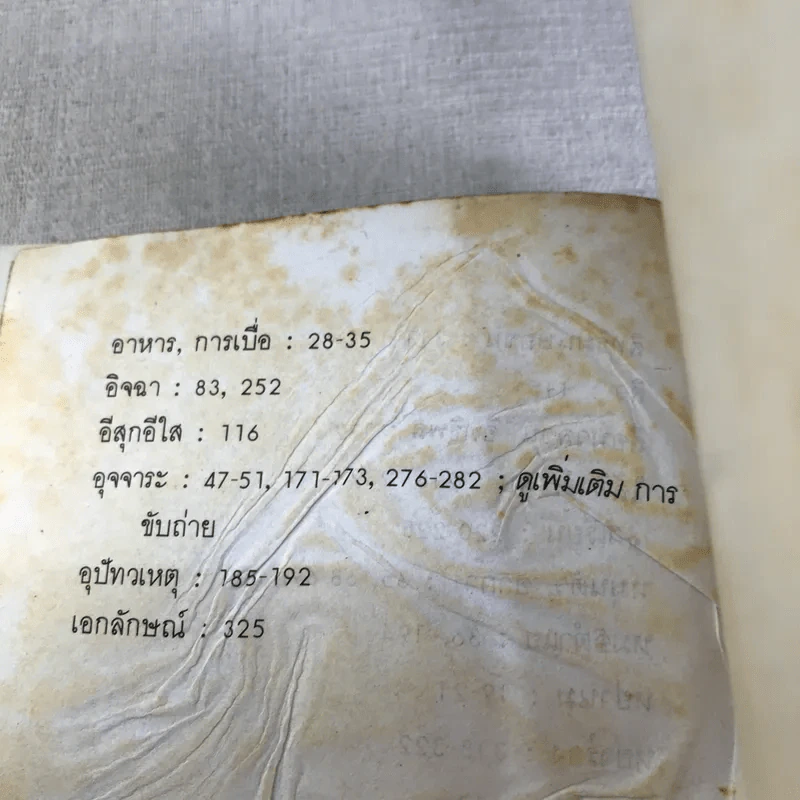 อาหาร, การเบื่อ : 28-35
อิจฉา : 83, 252
อีสุกอีใส : 116
อุจจาระ : 47-51, 171-173, 276-282 ; ดูเพิ่มเติม การ
ขับถ่าย
อุปัทวเหตุ : 185-192
เอกลักษณ์ : 325